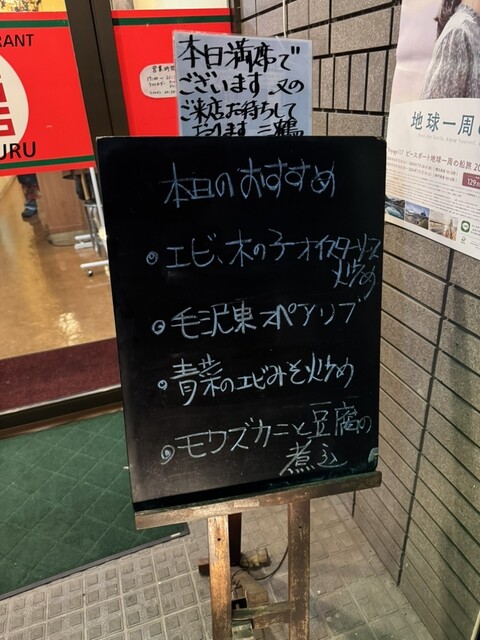 RANT
URU
営業時間
本日満席で
ございます 又の
ご来店お待ちして
おります 三鶴
本日のおすすめ
エビ、木の子オイスターソース
炒め
毛沢東スペアリブ
青菜のエビみそ炒め
モクズカニと豆腐の
煮込
地球一周の
ピースボート地球一周の船旅 20
129